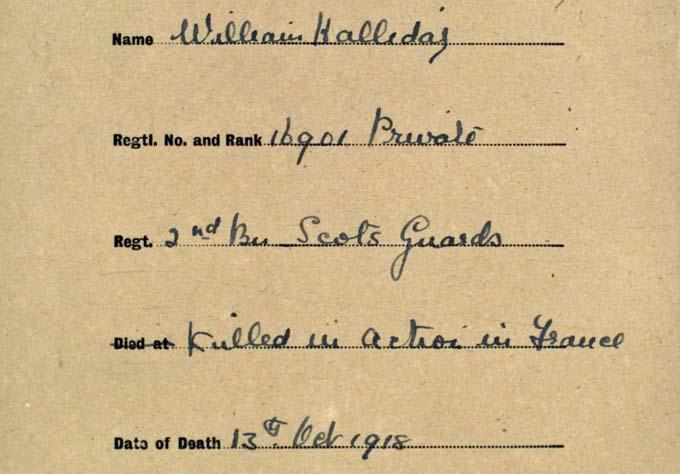 Name William Halliday
Regtl. No. and Rank 16901 Private
Regt. 2nd Bn Scots Guards
Died at Killed in action in France
Date of Death 13th Oct 1918